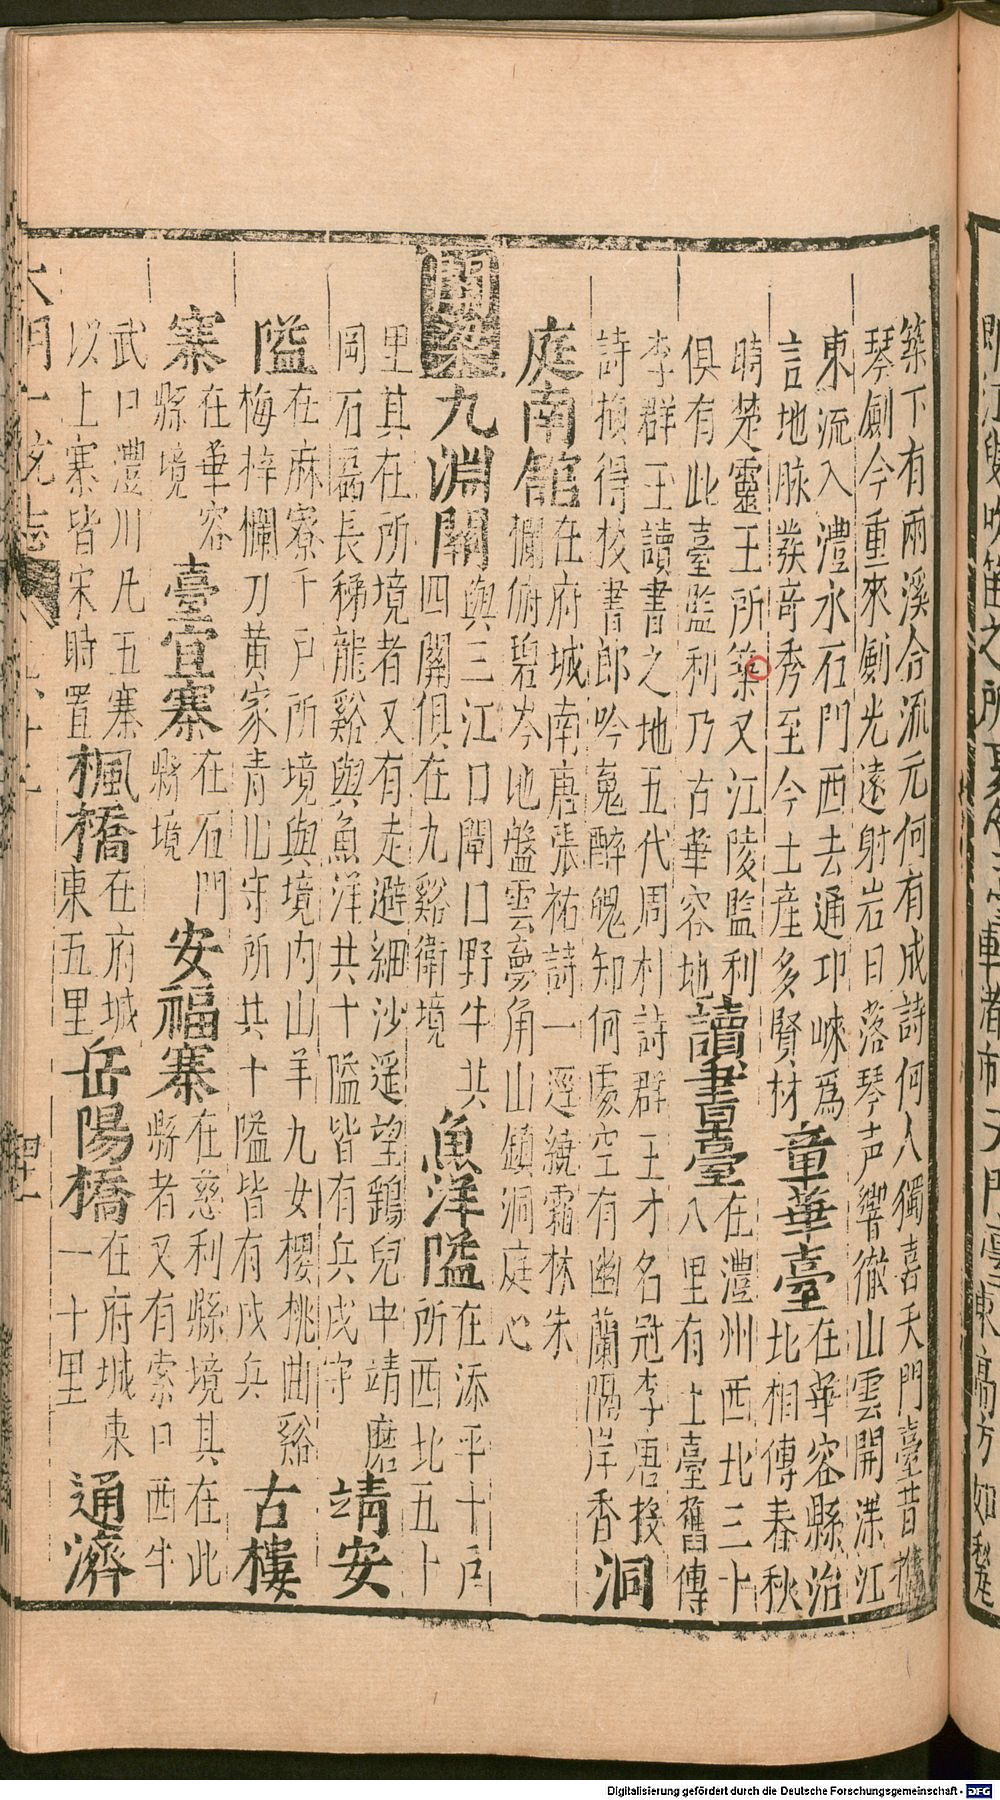 築下有兩溪合流元何有成詩何人獨喜天門臺昔携
琴劍今重來劍光遠射岩日落琴声響徹山雲開漾江
東流入澧永石門西去通卭崍爲
言地脉發竒秀至今土産多賢材
章華臺
在華容縣治
北相傳春秋
時楚靈王所築又江陵監利
俱有此臺監利乃古華容地
讀書臺
在澧州西北三十
八里有上臺舊傳
李群玉讀書之地五代周朴詩群玉才名冠李唐投
詩換得校書郎吟䰟醉魄知何處空有幽蘭隔岸香
洞
庭南館
在府城南唐張祐詩一逕繞霜林朱
欄俯碧岑地盤雲夢角山鎮洞庭心
關梁
九淵關
與三江口閘口野牛共
四關俱在九谿衛境
魚洋隘
在添平千户
所西北五十
里其在所境者又有走避細沙遥望鷄兒中靖磨
岡石磊長稊龍谿與魚洋共十隘皆有兵戍守
靖安
隘
在麻寮千户所境與境内山羊九女櫻桃曲谿
梅梓欄刀黄家青山守所共十隘皆有戍兵
古樓
寨
在華容
縣境
臺宜寨
在石門
縣境
安福寨
在慈利縣境其在此
縣者又有索口西牛
武口澧川凡五寨
以上寨皆宋時置
楓橋
在府城
東五里
岳陽橋
在府城東
一十里
通濟
大明一統志
Digitalisierung gefördert durch die Deutsche Forschungsgemeinschaft - DFG